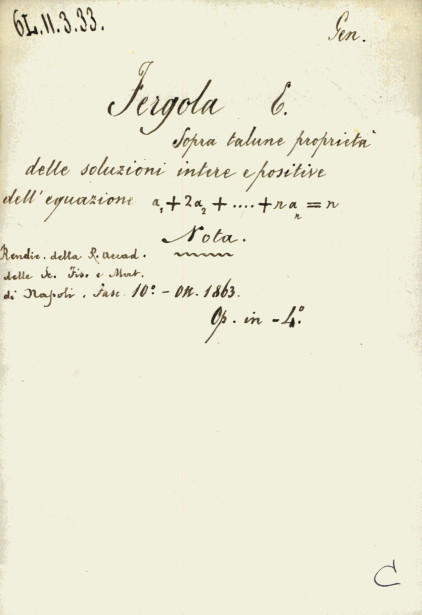 6L.11.3.33.
Gen.
Fergola E.
Sopra talune proprietà
delle soluzioni intere e positive
dell'equazione a₁+2a₂+....+naₙ=n
Nota.
Rendic. della R. Accad.
delle Sc. Fis. e Mat.
di Napoli. Fasc. 10º - Ott. 1863.
Op. in - 4º
C